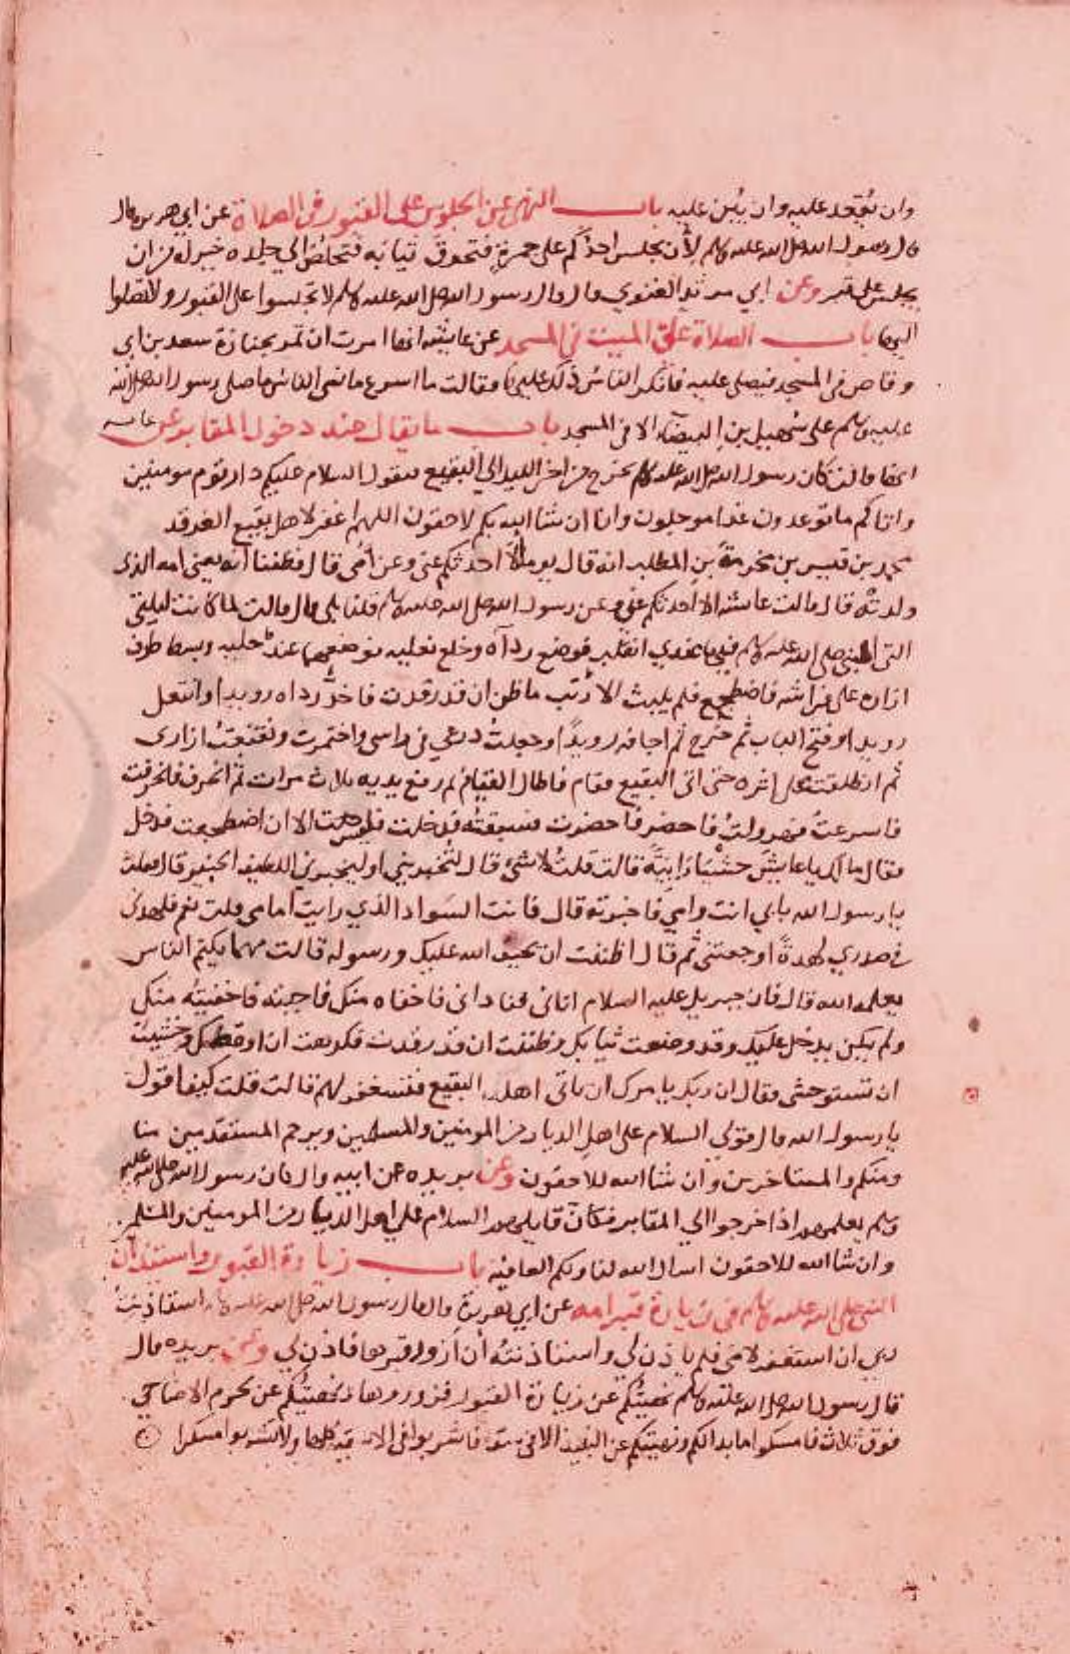 وان يقعد عليه وان يبنى عليه باب النهي عن الجلوس على القبور في الصلاة عن ابي هريره قال
قال رسول الله صلى الله عليه وسلم لأن يجلس احدكم على جمرة فتحرق ثيابه فتخلص الي جلده خير له من ان
يجلس على قبر وعن ابي مرثد الغنوي قال قال رسول الله صلى الله عليه وسلم لا تجلسوا على القبور ولا تصلوا
اليها باب الصلاة على الميت في المسجد عن عايشه انها امرت ان تمر بجنازة سعد بن ابي
وقاص في المسجد فيصلى عليه فانكر الناس ذلك عليها فقالت ما اسرع ما نسي الناس ما صلى رسول الله صلى الله
عليه وسلم على سهيل بن البيضاء الا في المسجد باب ما يقال عند دخول المقابر عن عايشه
انها قالت كان رسول الله صلى الله عليه وسلم يخرج من اخر الليل الي البقيع فيقول السلام عليكم دار قوم مومنين
واتاكم ما توعدون غدا موجلون وانا ان شا الله بكم لاحقون اللهم اغفر لاهل بقيع الغرقد
محمد بن قيس بن مخرمة بن المطلب انه قال يوما الا احدثكم عني وعن امي قال فظننا انه يعني امه الذي
ولدته قال قالت عايشه الا احدثكم عني وعن رسول الله صلى الله عليه وسلم قلنا بلى قال قالت لما كانت ليلتي
التي النبي صلى الله عليه وسلم فيها عندي انقلب فوضع رداه وخلع نعليه فوضعهما عند رجليه وبسط طرف
ازاره على فراشه فاضطجع فلم يلبث الا ريث ما ظن ان قد رقدت فاخذ رداه رويدا وانتعل
رويدا وفتح الباب ثم خرج ثم اجافه رويدا وجعلت درعي في راسي واختمرت وتقنعت ازاري
ثم انطلقت على اثره حتى اتى البقيع فقام فاطال القيام ثم رفع يديه ثلاث مرات ثم انحرف فانحرفت
فاسرعت فهرولت فاحضر فاحضرت فسبقته فدخلت فليس الا ان اضطجعت فدخل
فقال مالك يا عايش حشيا رابية قالت قلت لا شي قال لتخبريني او ليخبرني اللطيف الخبير قال قلت
يا رسول الله بابي انت وامي فاخبرته قال فانت السواد الذي رايت امامي قلت نعم فلهدني
في صدري لهدة اوجعتني ثم قال اظننت ان يحيف الله عليك ورسوله قالت مهما يكتم الناس
يعلمه الله قال فان جبريل عليه السلام اتاني فناداني فاخفاه منك فاجبته فاخفيته منك
ولم يكن يدخل عليك وقد وضعت ثيابك وظننت ان قد رقدت فكرهت ان اوقظك وخشيت
ان تستوحشي فقال ان ربك يا مرك ان تاتي اهل البقيع فتستغفر لهم قالت قلت كيف اقول
يا رسول الله قال قولي السلام على اهل الديار من المومنين والمسلمين ويرحم المستقدمين منا
ومنكم والمستاخرين وان شا الله للاحقون وعن بريده عن ابيه قال كان رسول الله صلى الله عليه
وسلم يعلمهم اذا خرجوا الي المقابر فكان قايلهم السلام على اهل الديار من المومنين والمسلمين
وان شا الله للاحقون اسال الله لنا ولكم العافيه باب زيارة القبور واستيذان
النبي صلى الله عليه وسلم في زيارة قبر امه عن ابي هريرة قال قال رسول الله صلى الله عليه وسلم استاذنت
ربي ان استغفر لامي فلم ياذن لي واستاذنته أن أزور قبرها فاذن لي وعن بريده قال
قال رسول الله صلى الله عليه وسلم نهيتكم عن زيارة القبور فزوروها ونهيتكم عن لحوم الاضاحي
فوق ثلاث فامسكوا ما بدا لكم ونهيتكم عن النبيذ الا في سقا فاشربوا في الاسقية كلها ولا تشربوا مسكرا